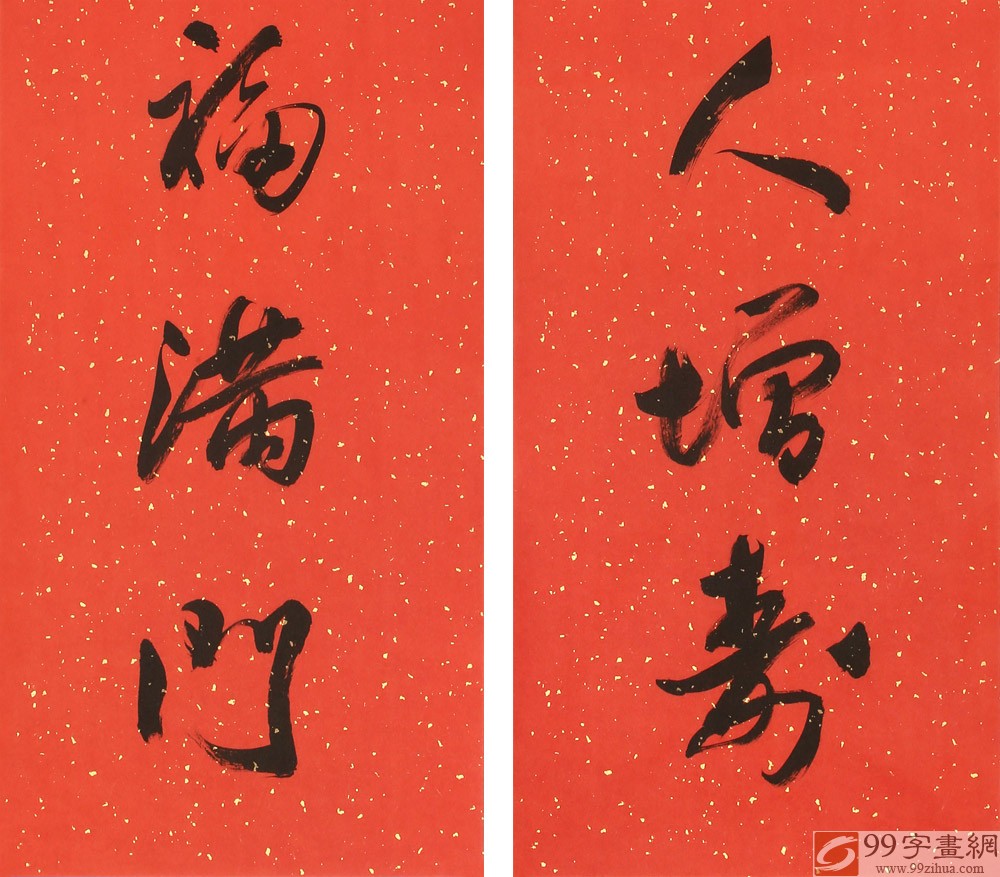 人增寿
福满門
99字畫網
www.99zihua.com